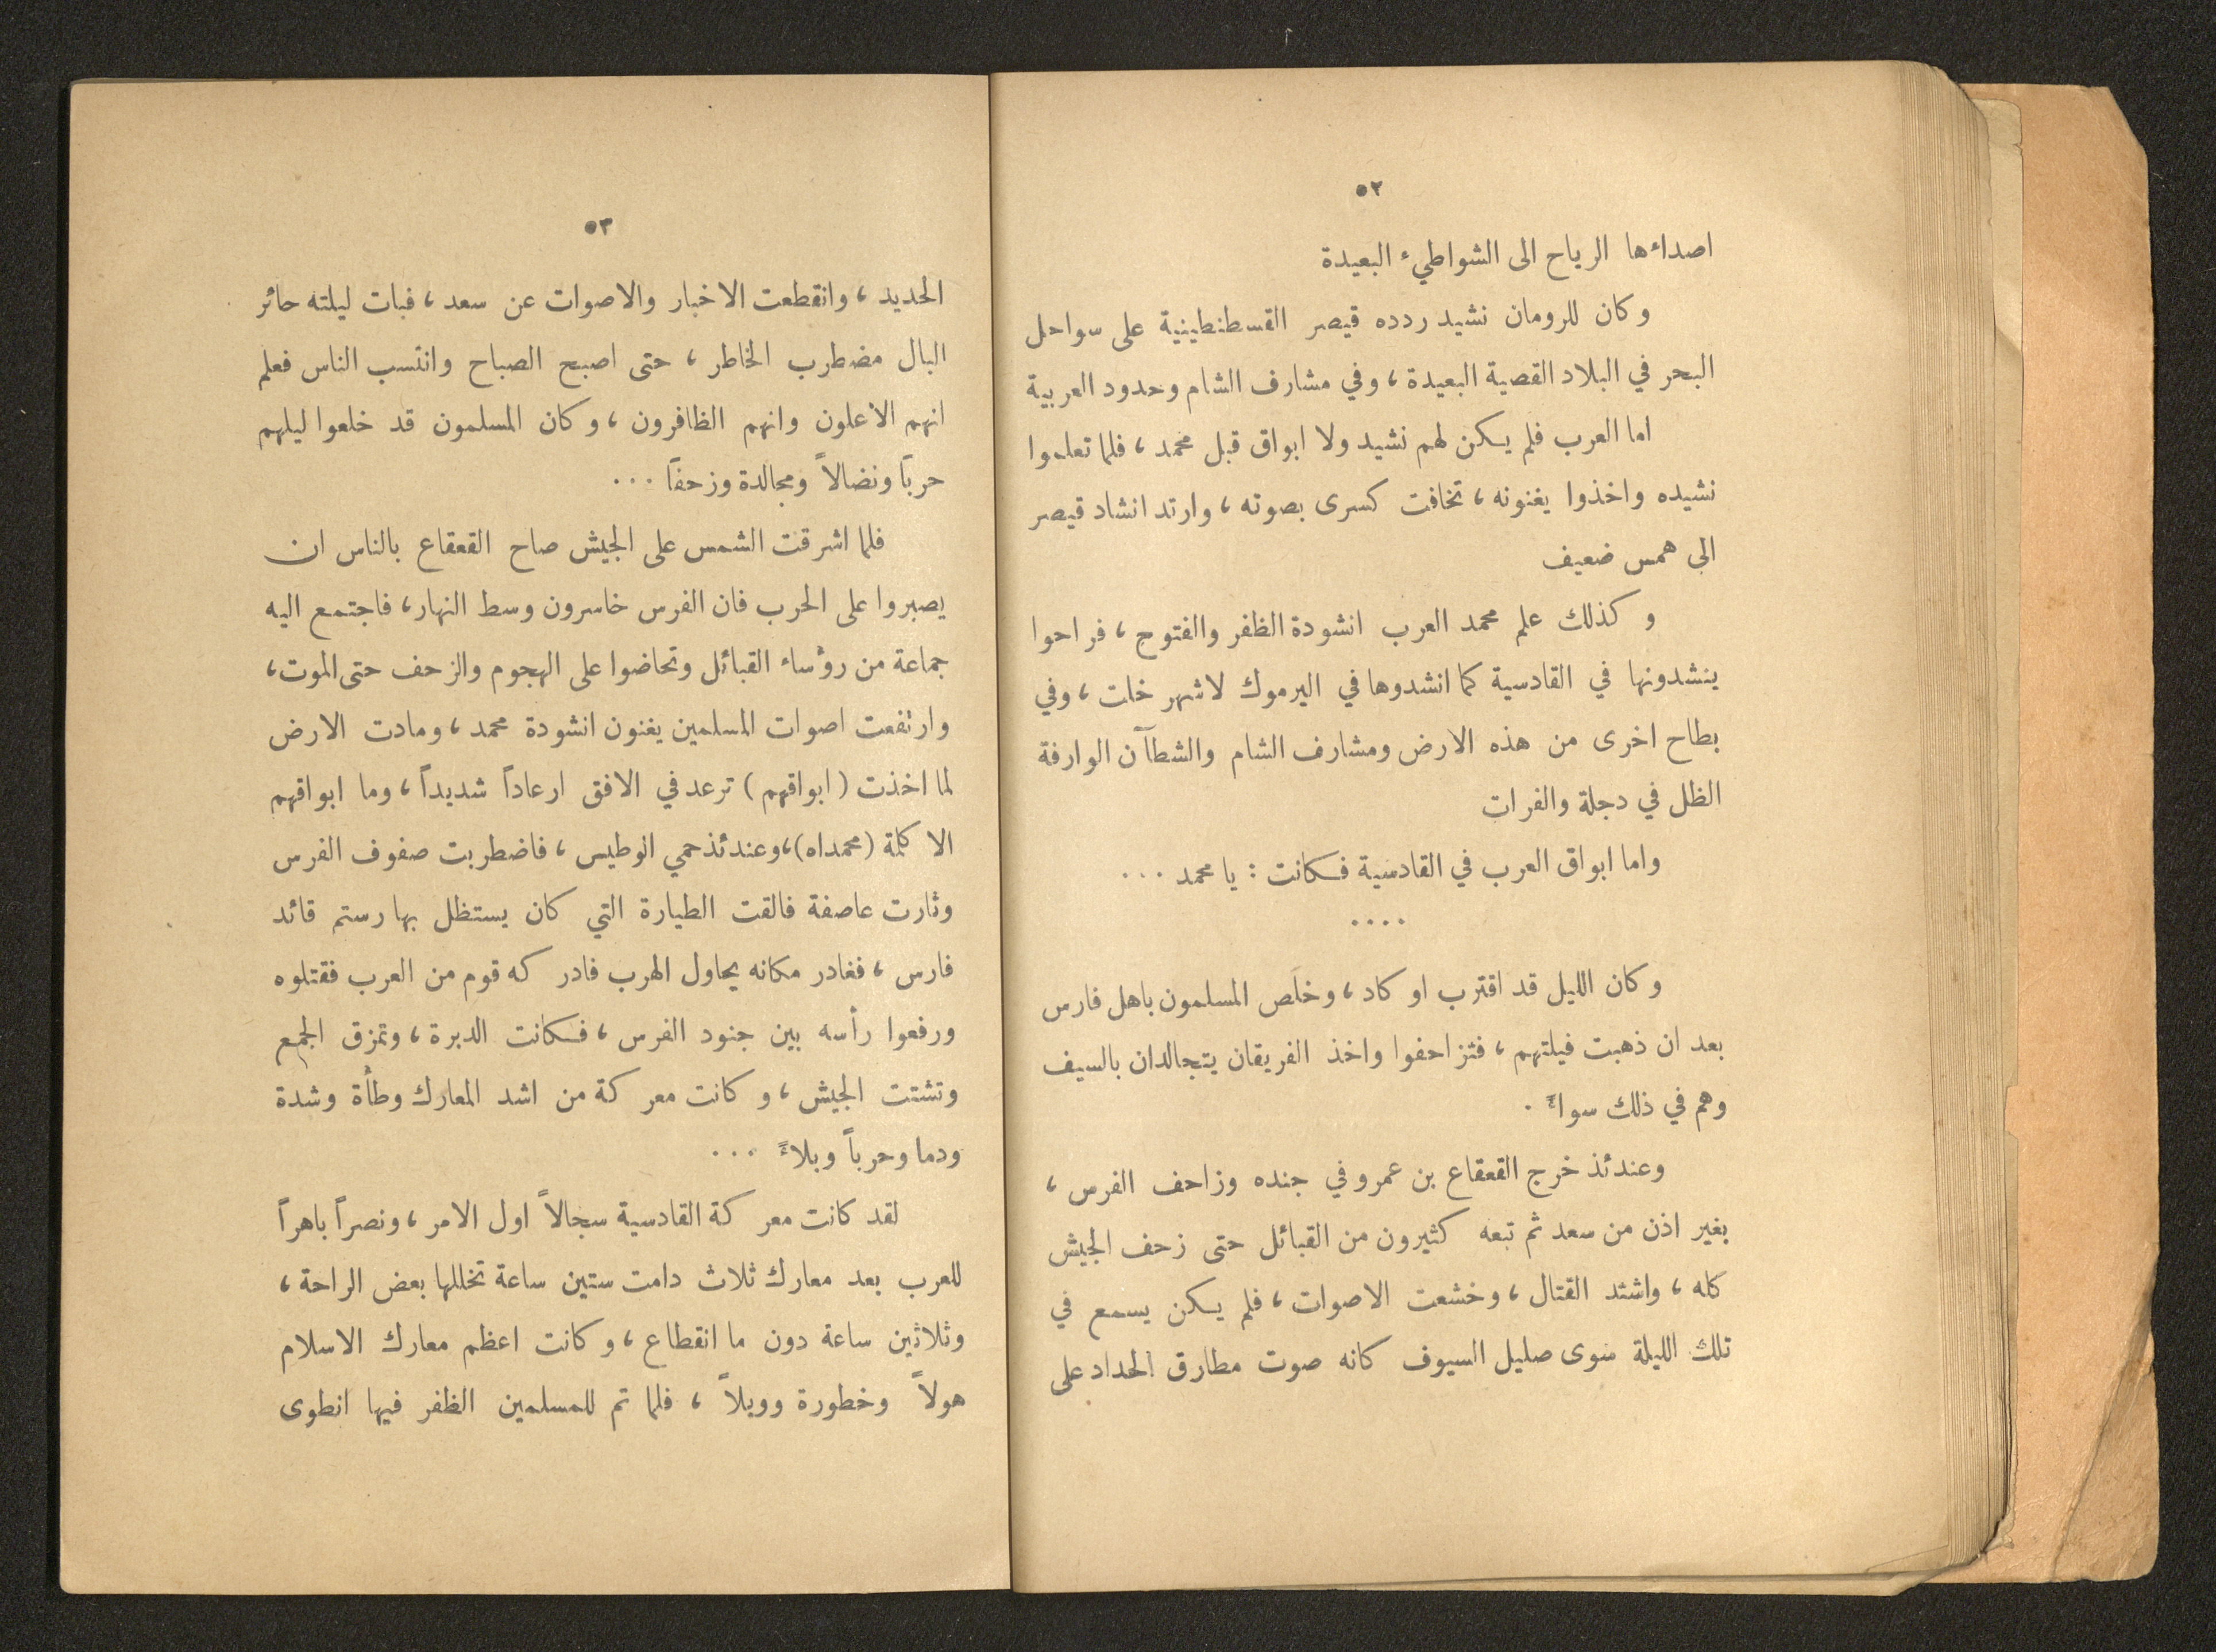 ٥٢
اصداءها الرياح الى الشواطيء البعيدة
وكان للرومان نشيد ردده قيصر القسطنطينية على سواحل
البحر في البلاد القصية البعيدة، وفي مشارف الشام وحدود العربية
اما العرب فلم يكن لهم نشيد ولا ابواق قبل محمد، فلما تعلموا
نشيده واخذوا يغنونه، تخافت كسرى بصوته، وارتد انشاد قيصر
الى همس ضعيف
وكذلك علم محمد العرب انشودة الظفر والفتوح، فراحوا
ينشدونها في القادسية كما انشدوها في اليرموك لاشهر خلت، وفي
بطاح اخرى من هذه الارض ومشارف الشام والشطآن الوارفة
الظل في دجلة والفرات
واما ابواق العرب في القادسية فكانت : يا محمد ...
....
وكان الليل قد اقترب او كاد، وخلَص المسلمون باهل فارس
بعد ان ذهبت فيلتهم، فتزاحفوا واخذ الفريقان يتجالدان بالسيف
وهم في ذلك سواءً .
وعندئذ خرج القعقاع بن عمرو في جنده وزاحف الفرس،
بغير اذن من سعد ثم تبعه كثيرون من القبائل حتى زحف الجيش
كله، واشتد القتال، وخشعت الاصوات، فلم يكن يسمع في
تلك الليلة سوى صليل السيوف كانه صوت مطارق الحداد على
٥٣
الحديد، وانقطعت الاخبار والاصوات عن سعد، فبات ليلته حائر
البال مضطرب الخاطر، حتى اصبح الصباح وانتسب الناس فعلم
انهم الاعلون وانهم الظافرون، وكان المسلمون قد خلعوا ليلهم
حرباً ونضالاً ومجالدة وزحفاً ...
فلما اشرقت الشمس على الجيش صاح القعقاع بالناس ان
يصبروا على الحرب فان الفرس خاسرون وسط النهار، فاجتمع اليه
جماعة من رؤساء القبائل وتحاضوا على الهجوم والزحف حتى الموت،
وارتفعت اصوات المسلمين يغنون انشودة محمد، ومادت الارض
لما اخذت (ابواقهم) ترعد في الافق ارعاداً شديداً، وما ابواقهم
الا كلمة (محمداه)، وعندئذ حمي الوطيس، فاضطربت صفوف الفرس
وثارت عاصفة فالقت الطيارة التي كان يستظل بها رستم قائد
فارس، فغادر مكانه يحاول الهرب فادركه قوم من العرب فقتلوه
ورفعوا رأسه بين جنود الفرس، فكانت الدبرة، وتمزق الجمع
وتشتت الجيش، وكانت معركة من اشد المعارك وطأة وشدة
ودما وحرباً وبلاءً ...
لقد كانت معركة القادسية سجالاً اول الامر، ونصراً باهراً
للعرب بعد معارك ثلاث دامت ستين ساعة تخللها بعض الراحة،
وثلاثين ساعة دون ما انقطاع، وكانت اعظم معارك الاسلام
هولاً وخطورة ووبلاً، فلما تم للمسلمين الظفر فيها انطوى